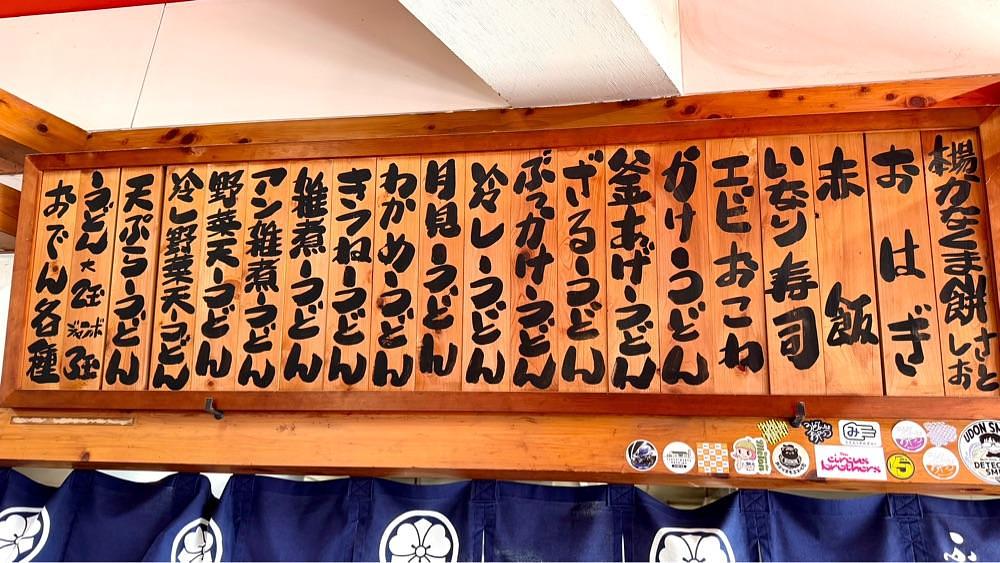 揚かなくま餅 さと しお
おはぎ
赤飯
いなり寿司
エビおこわ
かけうどん
釜あげうどん
ざるうどん
ぶっかけうどん
冷しうどん
月見うどん
わかめうどん
きつねうどん
雑煮うどん
アン雑煮うどん
野菜天うどん
冷し野菜天うどん
天ぷらうどん
うどん 大 2玉 ジャンボ 3玉
おでん各種
the circus brothers
UDON